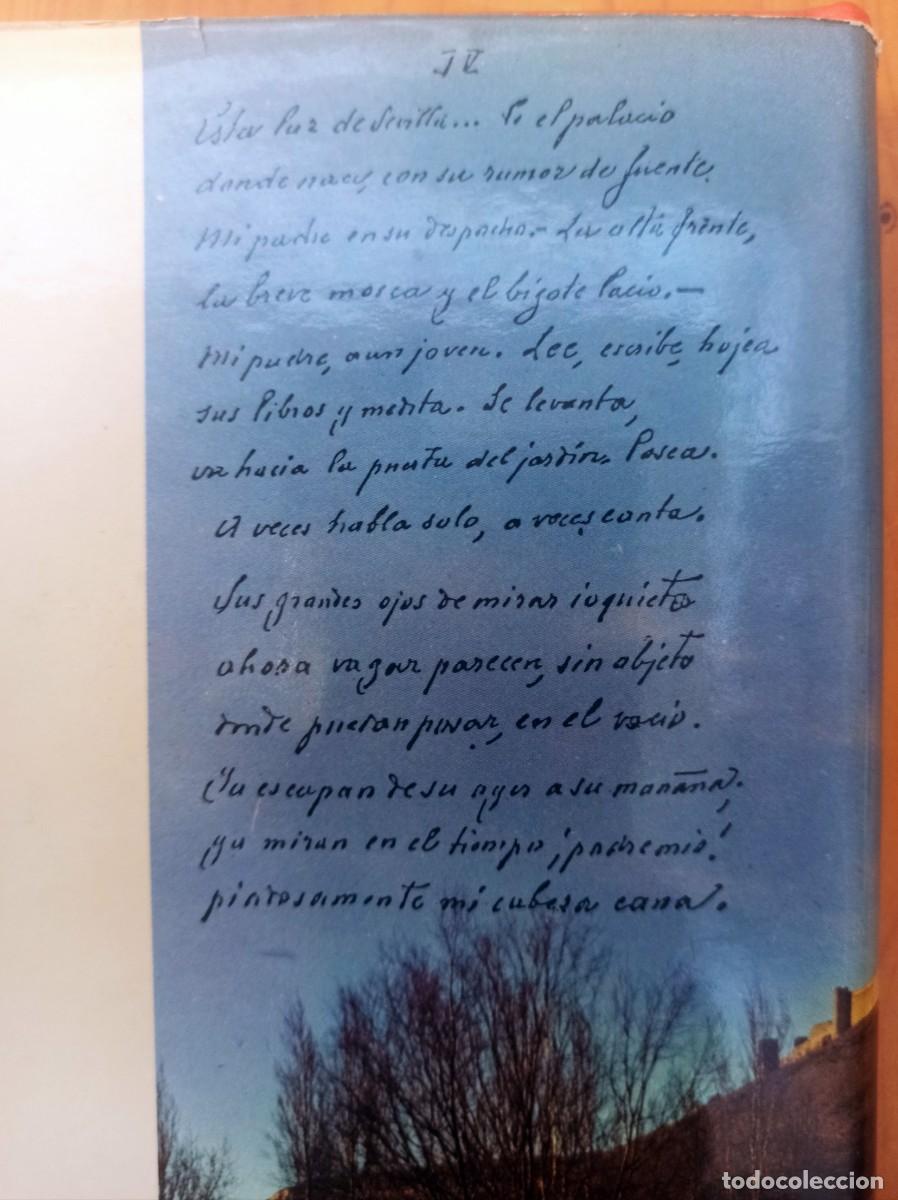 IV
Esta luz de Sevilla... Es el palacio
donde nací, con su rumor de fuente.
Mi padre en su despacho.- La alta frente,
la breve mosca y el bigote lacio.-
Mi padre, aun joven. Lee, escribe, hojea
sus libros y medita. Se levanta,
va hacia la puerta del jardín. Pasea.
A veces habla solo, a veces canta.
Sus grandes ojos de mirar inquieto
ahora vagar parecen, sin objeto
donde puedan posar, en el vacío.
Ya escapan de su ayer a su mañana;
ya miran en el tiempo, ¡padre mío!
piadosamente mi cabeza cana.
todocoleccion